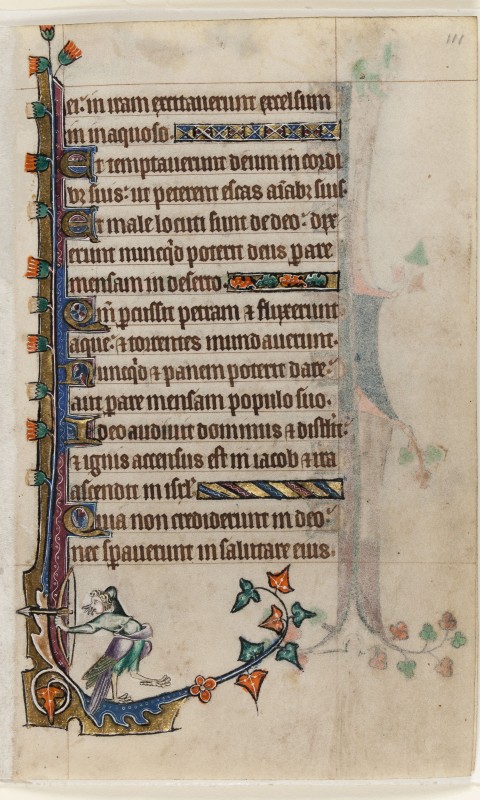 111
ei: in iram excitauerunt excelsum
in inaquoso.
Et temptauerunt deum in cordi
bȝ suis: ut peterent escas aiabȝ suis.
Et male locuti sunt de deo: dix
erunt nunqd poterit deus pare
mensam in deserto.
Qm pcussit petram ⁊ fluxerunt
aque: ⁊ torrentes inundauerunt.
Nunqd ⁊ panem poterit dare:
aut pare mensam populo suo.
Ideo audiuit dominus ⁊ distlit:
⁊ ignis accensus est in iacob ⁊ ira
ascendit in isrl.
Quia non crediderunt in deo:
nec spauerunt in salutare eius.